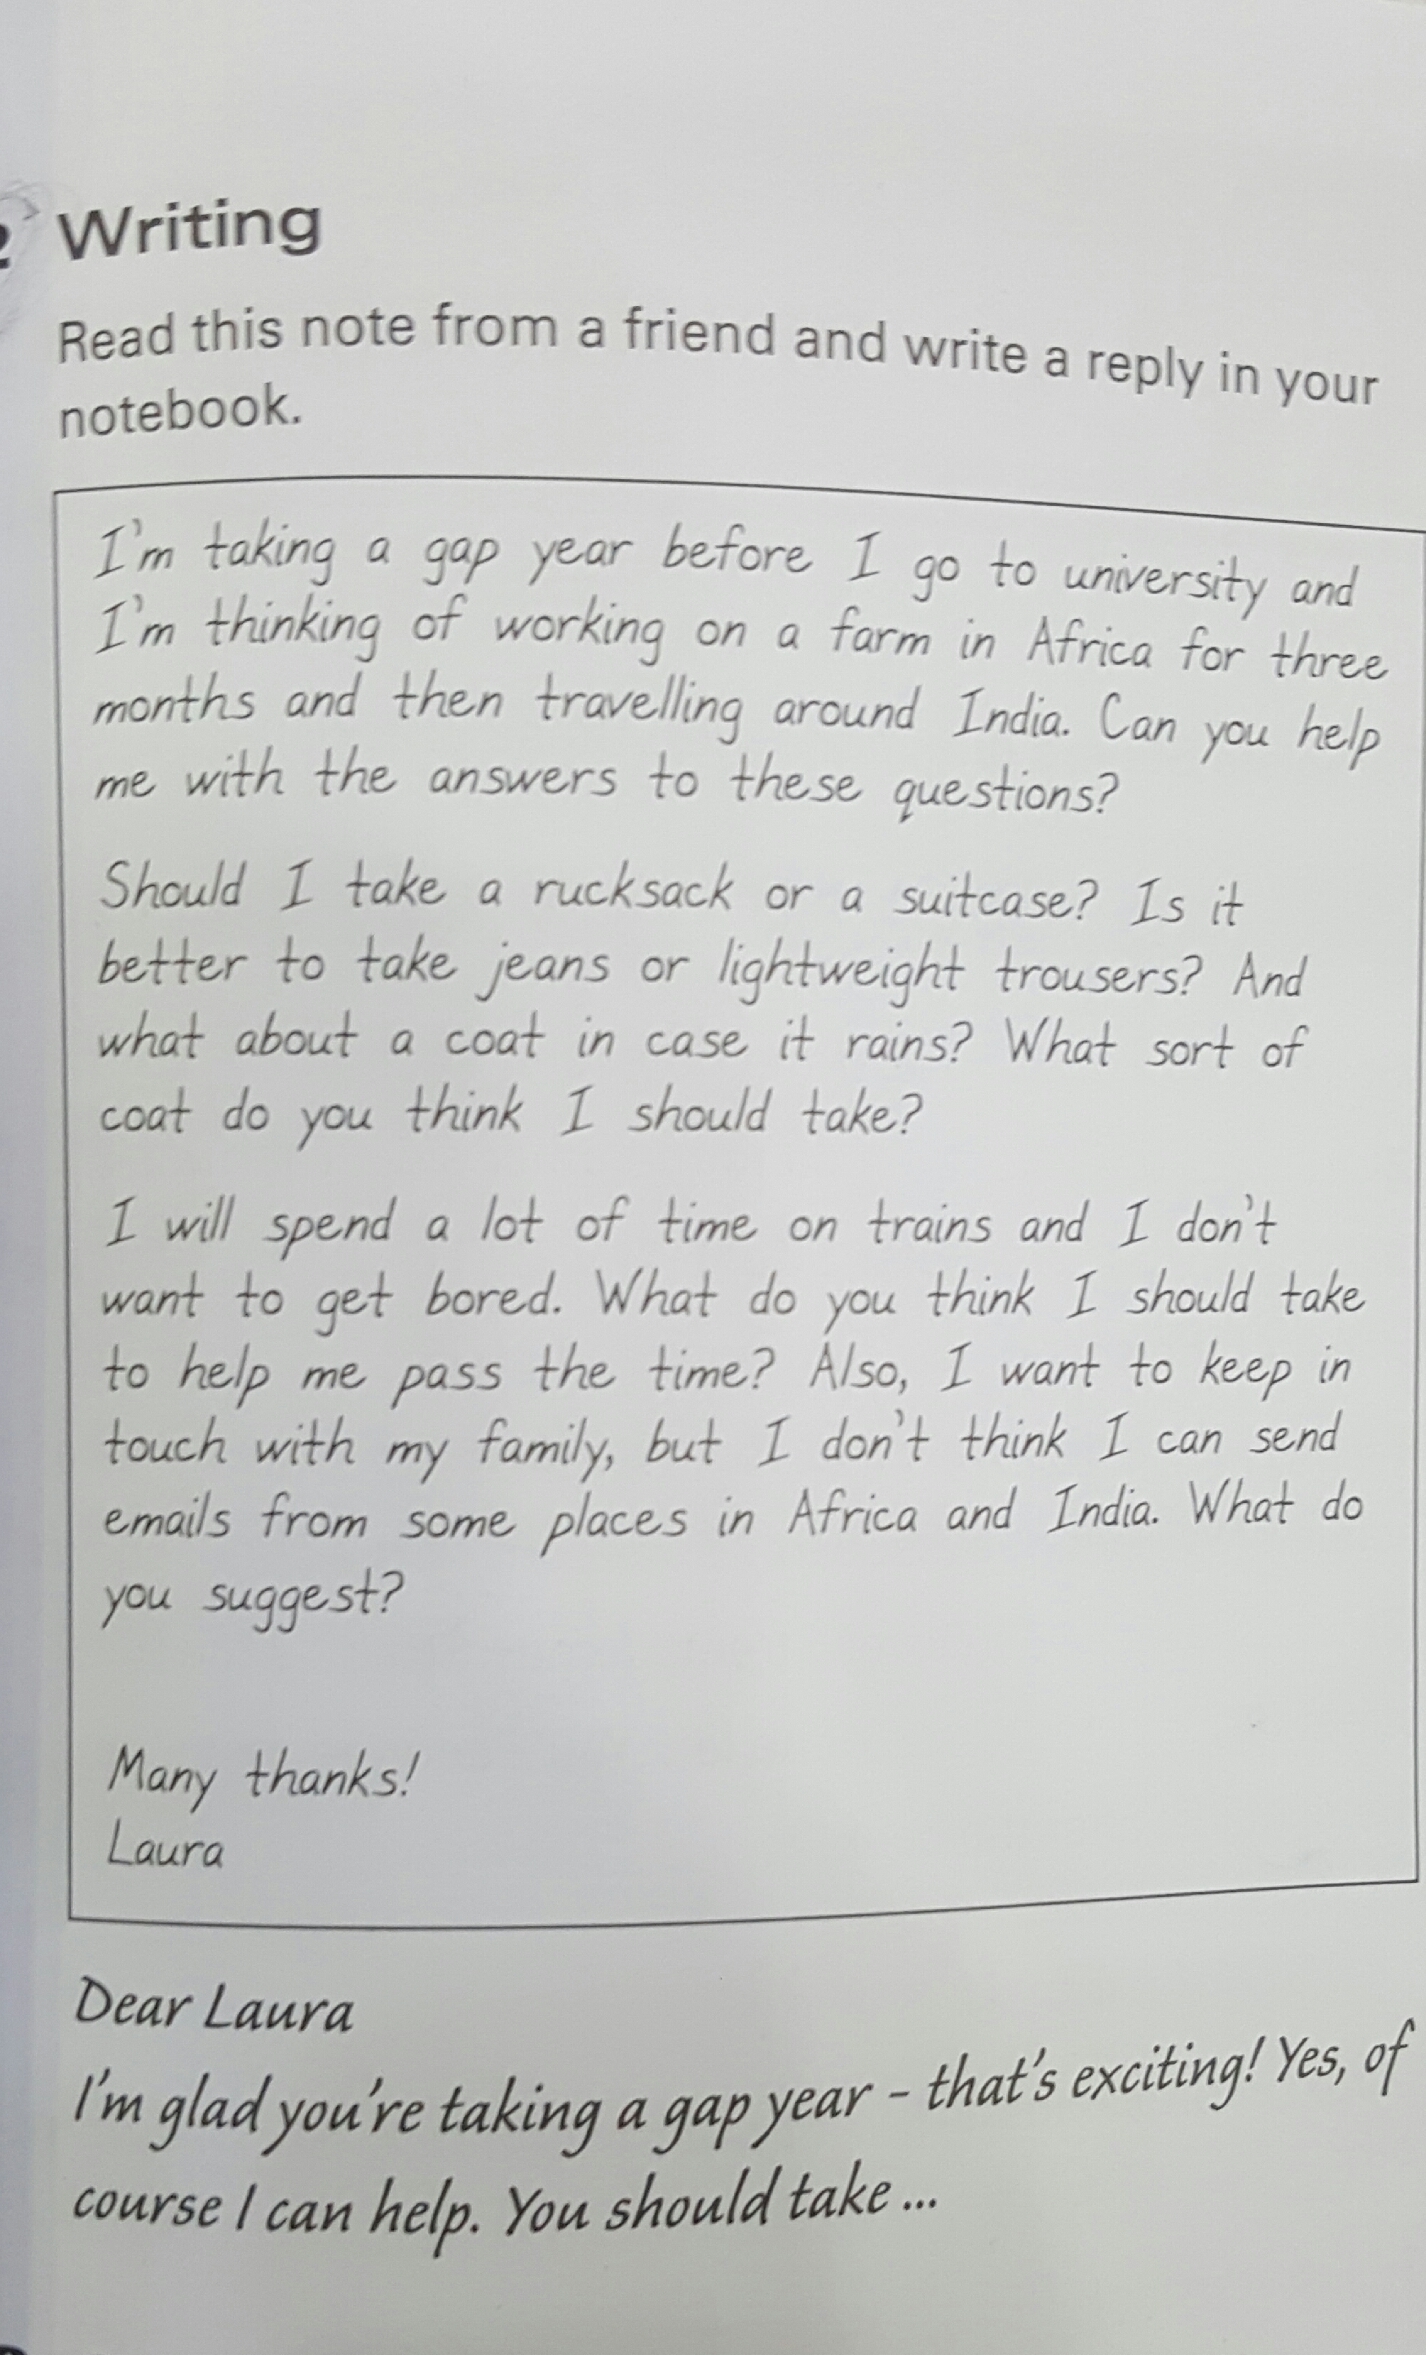 Writing
Read this note from a friend and write a reply in your
notebook.
I'm taking a gap year before I go to university and
I'm thinking of working on a farm in Africa for three
months and then travelling around India. Can you help
me with the answers to these questions?
Should I take a rucksack or a suitcase? Is it
better to take jeans or lightweight trousers? And
what about a coat in case it rains? What sort of
coat do you think I should take?
I will spend a lot of time on trains and I don't
want to get bored. What do you think I should take
to help me pass the time? Also, I want to keep in
touch with my family, but I don't think I can send
emails from some places in Africa and India. What do
you suggest?
Many thanks!
Laura
Dear Laura
I'm glad you're taking a gap year - that's exciting! Yes, of
course I can help. You should take ...